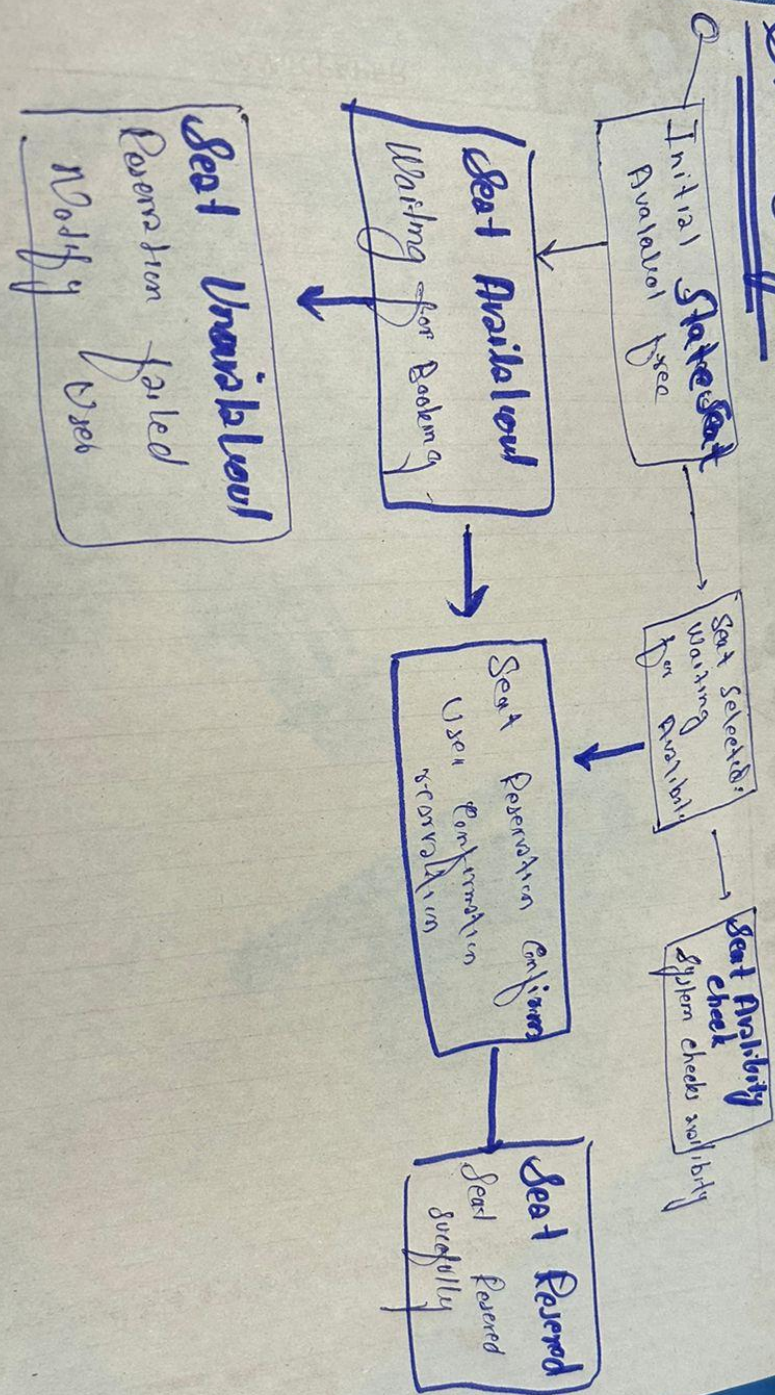 Initial State Seat
Avalabol free
Seat Selected:
Waiting
for Avalibity
Seat Avalibity
check
System checks avalibity
Seat Availaboul
Waiting for Booking
Seat Reservation Confirm
User Confirmation
reservation
Seat Resered
Seat Resered
sucefully
Seat Unavailaboul
Reservation failed
Notify User